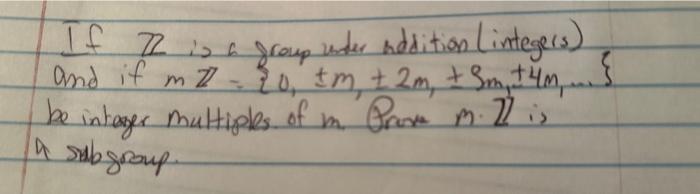 If ℤ is a group under addition (integers)
and if mℤ = {0, ±m, ±2m, ±3m, ±4m, ... }
be integer multiples of m. Prove m·ℤ is
a subgroup.